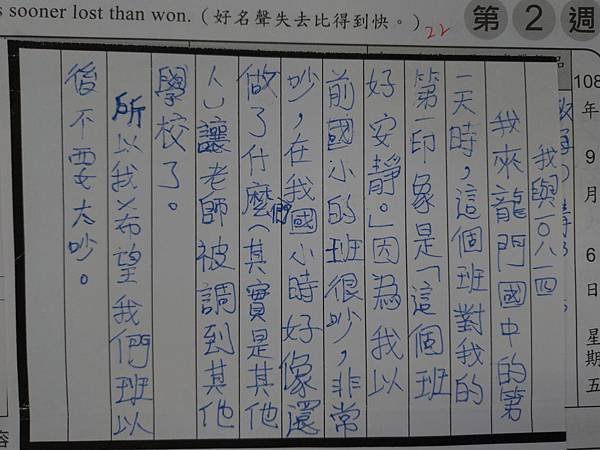 s sooner lost than won.(好名聲失去比得到快。)
22
第2週
108年9月6日 星期五
我與一〇八一四
我來龍門國中的第
一天時,這個班對我的
第一印象是「這個班
好安靜。」因為我以
前國小的班很吵,非常
吵,在我們國小時好像還
做了什麼(其實是其他
人)讓老師被調到其他
學校了。
所以我希望我們班以
後不要太吵。
容